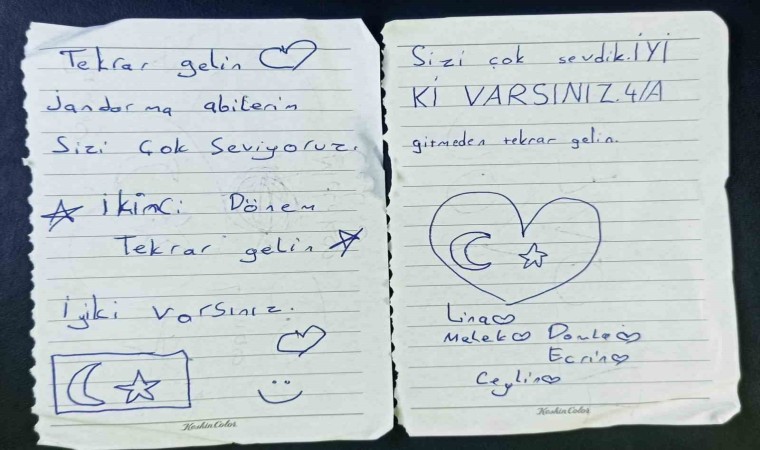 Tekrar gelin
jandarma abilerim
Sizi Çok Seviyoruz.
ikinci Dönem
Tekrar gelin
iyiki varsınız.
KeskinColor
Sizi çok sevdik.İYİ
Kİ VARSINIZ.4/A
gitmeden tekrar gelin.
Lina
Melek Damla
Ecrin
Ceylin
KeskinColor